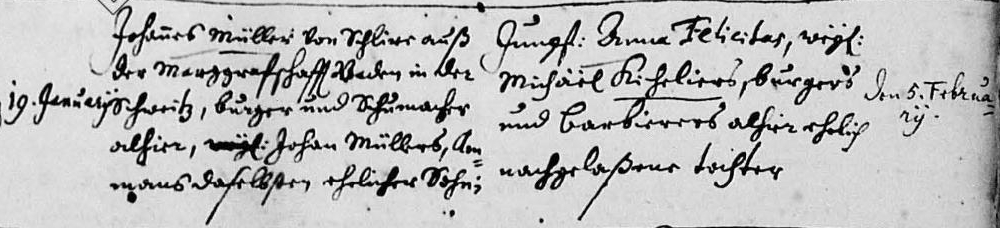 19. Januarij
Johannes Müller von Schlire auß
der Marggrafschafft Baden in der
Schweitz, burger und Schumacher
alhier, weyl: Johan Müllers, Am=
mans daselbsten ehelicher Sohn;
Jungf: Anna Felicitas, weyl:
Michäel Kicheliers, burgers
und Barbierers alhier ehelich
nachgelaßene tochter
den 5. Februa=
rij.